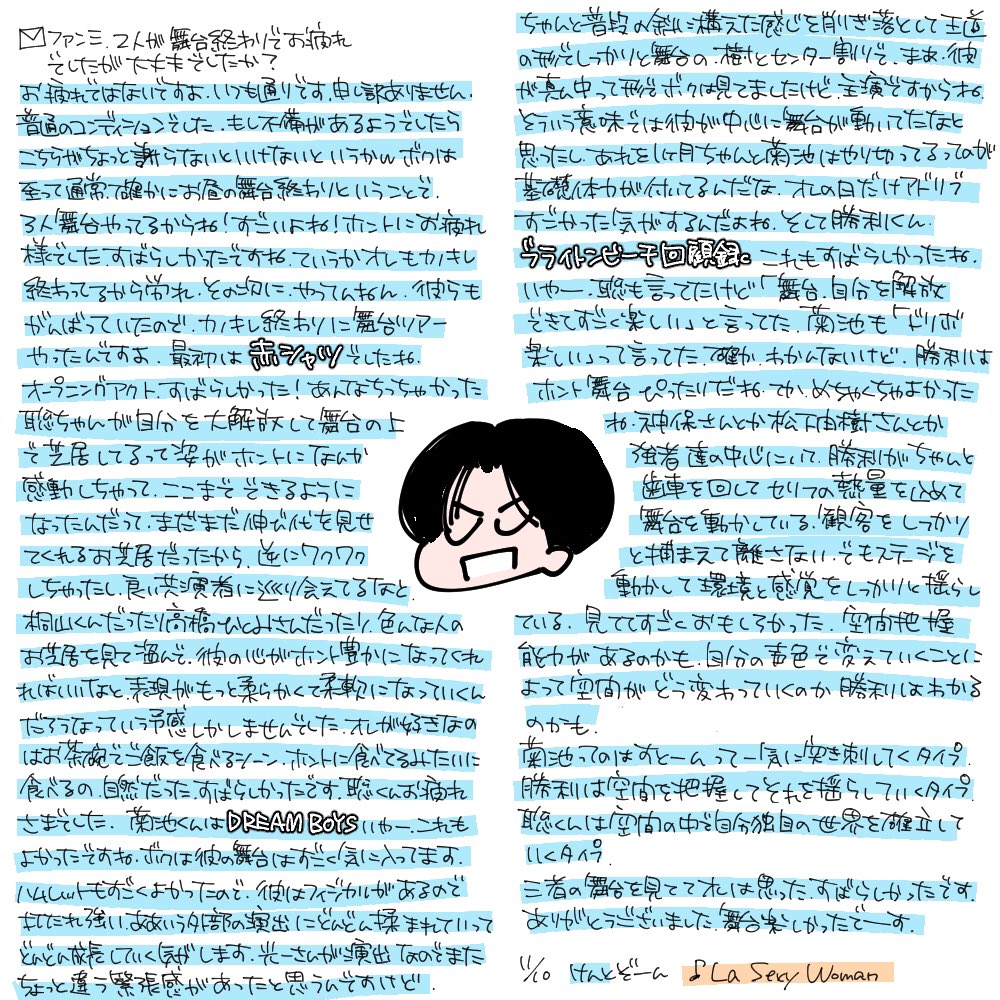 ファンミ、2人が舞台終わりでお疲れ
でしたが大丈夫でしたか？
お疲れではないですよ、いつも通りです、申し訳ありません。
普通のコンディションでした、もし不備があるようでしたら
こちらがちょっと謝らないといけないというかw ボクは
至って通常、確かにお昼の舞台終わりということで、
3人舞台やってるからね！すごいよね！ホントにお疲れ
様でした、すばらしかったですね、ていうかオレもカノキレ
終わってるから労れ、その次に、やってんねん、彼らも
がんばっていたので、カノキレ終わりに舞台ツアー
やったんですよ、最初は赤シャツでしたね、
オープニングアクト、すばらしかった！あんなちっちゃかった
聡ちゃんが自分を大解放して舞台の上
で芝居してるって姿がホントになんか
感動しちゃって、ここまでできるように
なったんだって、まだまだ伸び代を見せ
てくれるお芝居だったから、逆にワクワク
しちゃったし、良い共演者に巡り会えてるなと、
桐山くんだったり高橋ひとみさんだったり、色んな人の
お芝居を見て盗んで、彼の心がホント豊かになってくれ
ればいいなと、表現がもっと柔らかくて柔軟になっていくん
だろうなっていう予感しかしませんでした、オレが好きなの
はお茶碗でご飯を食べるシーン、ホントに食べてるみたいに
食べるの、自然だった、すばらしかったです、聡くんお疲れ
さまでした、菊池くんはDREAM BOYSいやー、これも
よかったですね、ボクは彼の舞台はすごく気に入ってます、
ハムレットもすごくよかったので、彼はフィジカルがあるので
叩たれ強い、ああいう外部の演出にどんどん揉まれていって
どんどん成長していく気がします、光一さんが演出なのでまた
ちょっと違う緊張感があったと思うんですけど、
ちゃんと普段の斜に構えた感じを削ぎ落として王道
の形でしっかりと舞台の、権利とセンター割りで、まあ、彼
が真ん中って形でボクは見てましたけど、主演ですからね、
そういう意味では彼が中心に舞台が動いてたなと
思ったし、あれを1ヶ月ちゃんと菊池はやり切ってるってのが
基礎体力が付いてるんだな、オレの日だけアドリブ
すごかった気がするんだよね、そして勝利くん
ブライトンビーチ回顧録。これもすばらしかったね、
いやー、聡も言ってたけど「舞台、自分を解放
できてすごく楽しい」と言ってた、菊池も「ドリボ
楽しい」って言ってた、確か、わかんないけど、勝利は
ホント舞台ぴったりだね、てか、めちゃくちゃよかった
ね、神保さんとか松下由樹さんとか
強者達の中心にいて、勝利がちゃんと
歯車を回してセリフの熱量を込めて
舞台を動かしている、観客をしっかり
と捕まえて離さない、でもステージを
動かして環境と感覚をしっかりと揺らし
ている、見ててすごくおもしろかった、空間把握
能力があるのかも、自分の声色で変えていくことに
よって空間がどう変わっていくのか勝利はわかる
のかも、
菊池ってのはすとーんって一気に突き刺してくタイプ、
勝利は空間を把握してそれを揺らしていくタイプ、
聡くんは空間の中で自分独自の世界を確立して
いくタイプ、
三者の舞台を見ててオレは思った、すばらしかったです、
ありがとうございました、舞台楽しかったでーす、
11/10 けんとぞーん ♪La Sexy Woman